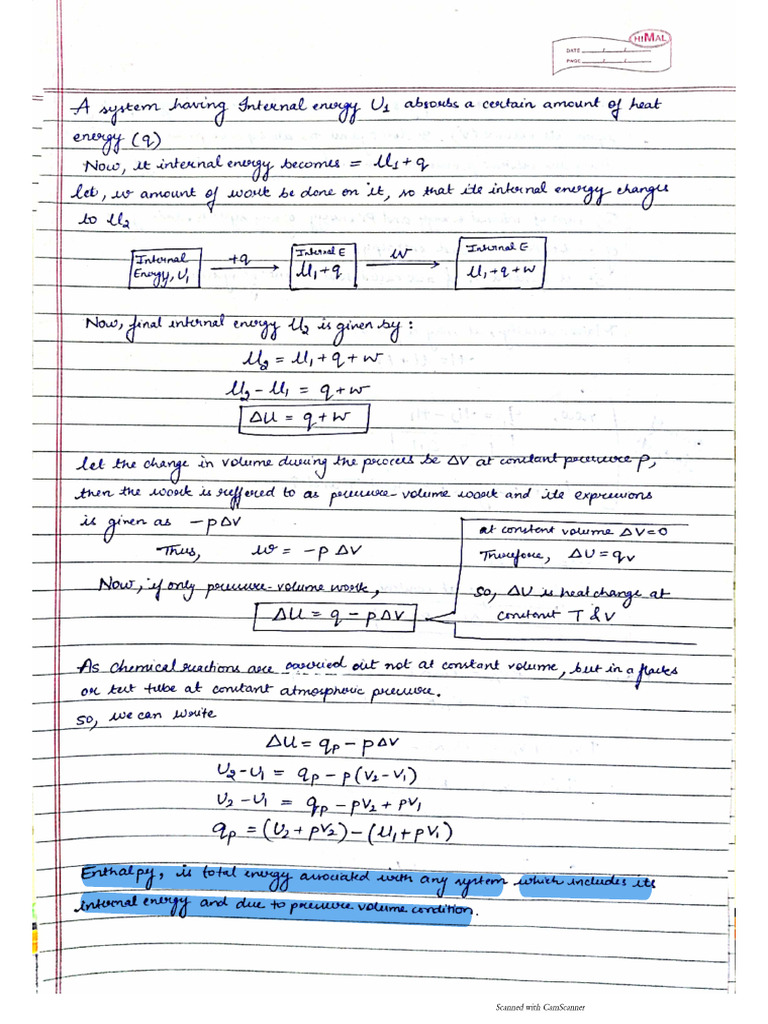 HIMAL
DATE
PAGE
A system having Internal energy U1 absorbs a certain amount of heat
energy (q)
Now, it internal energy becomes = U1 + q
let, w amount of work be done on it, so that its internal energy changes
to U2
Internal Energy, U1 +q Internal E U1 + q W Internal E U1 + q + w
Now, final internal energy U2 is given by :
U2 = U1 + q + w
U2 - U1 = q + w
ΔU = q + w
let the change in volume during the process be ΔV at constant pressure P,
then the work is reffered to as pressure-volume work and its expressions
is given as -pΔV
Thus, w = -pΔV
Now, if only pressure-volume work,
ΔU = q - pΔV
at constant volume ΔV=0
Therefore, ΔU = qv
So, ΔU is heat change at
constant T & V
As chemical reactions are carried out not at constant volume, but in a flacks
or test tube at constant atmospheric pressure.
So, we can write
ΔU = qp - pΔV
U2 - U1 = qp - p(V2 - V1)
U2 - U1 = qp - pV2 + pV1
qp = (U2 + pV2) - (U1 + pV1)
Enthalpy, is total energy associated with any system which includes its
internal energy and due to pressure volume condition.
Scanned with CamScanner